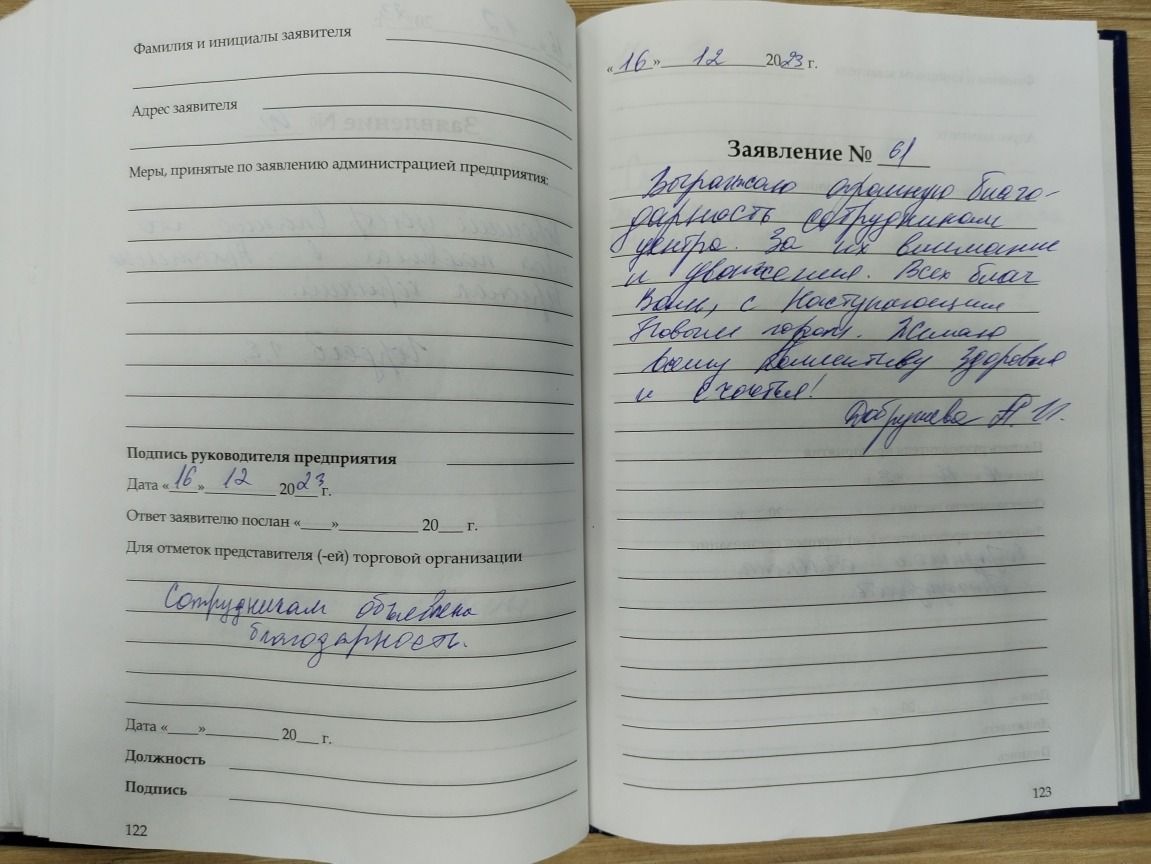 Фамилия и инициалы заявителя
Адрес заявителя
Меры, принятые по заявлению администрацией предприятия:
Подпись руководителя предприятия
Дата «16» 12 2023 г.
Ответ заявителю послан «____»____________ 20___ г.
Для отметок представителя (-ей) торговой организации
Сотрудникам объявлена
благодарность.
Дата «____»__________ 20___ г.
Должность
Подпись
122
«16» 12 2023 г.
Заявление № 61
Выражаю огромную благо-
дарность сотрудникам
центра. За их внимание
и уважения. Всех благ
Вам, с Наступающим
Новым годом. Желаю
всему Коллективу Здоровья
и счастья!
А. И.
123